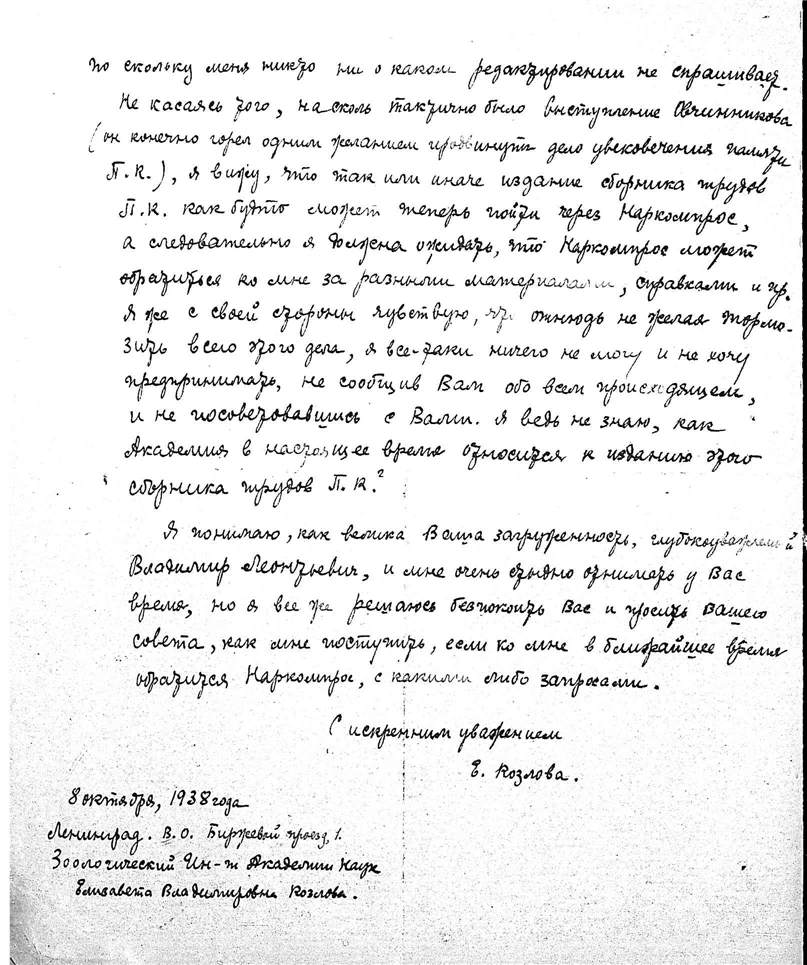 по скольку меня никто ни о каком редактировании не спрашивает.
Не касаясь того, насколь тактично было выступление Овчинникова
(он конечно горел одним желанием продвинуть дело увековечения памяти
П.К.), я вижу, что так или иначе издание сборника трудов
П.К. как будто может теперь пойти через Наркомпрос,
а следовательно я должна ожидать, что Наркомпрос может
обратиться ко мне за разными материалами, справками и пр.
Я же с своей стороны чувствую, что отнюдь не желая тормо-
зить всего этого дела, я все-таки ничего не могу и не хочу
предпринимать, не сообщив Вам обо всем происходящем,
и не посоветовавшись с Вами. Я ведь не знаю, как
Академия в настоящее время относится к изданию этого
сборника трудов П.К.?
Я понимаю, как велика Ваша загруженность, глубокоуважаемый
Владимир Леонтьевич, и мне очень стыдно отнимать у Вас
время, но я все же решаюсь безпокоить Вас и просить Вашего
совета, как мне поступить, если ко мне в ближайшее время
обратится Наркомпрос, с какими либо запросами.
С искренним уважением
Е. Козлова.
8 октября, 1938 года
Ленинград. В.О. Биржевой проезд, 1.
Зоологический Ин-т Академии Наук
Елизавета Владимировна Козлова.